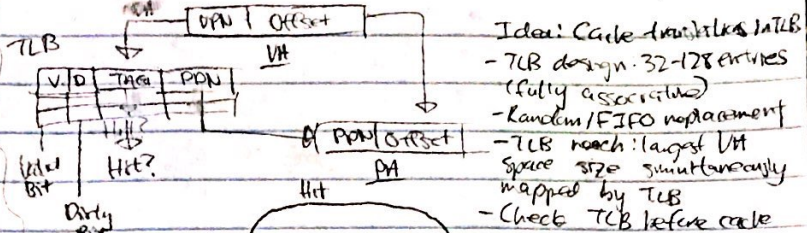 VPN | Offset
VA
TLB
V. D. TAG PPN
Hit?
Valid
Bit
Dirty
PPN | Offset
PA
Hit
Idea: Cache translations in TLB
- TLB design. 32-128 entries
(fully associative)
- Random/FIFO replacement
- TLB reach: largest VA
space size simultaneously
mapped by TLB
- Check TLB before cache